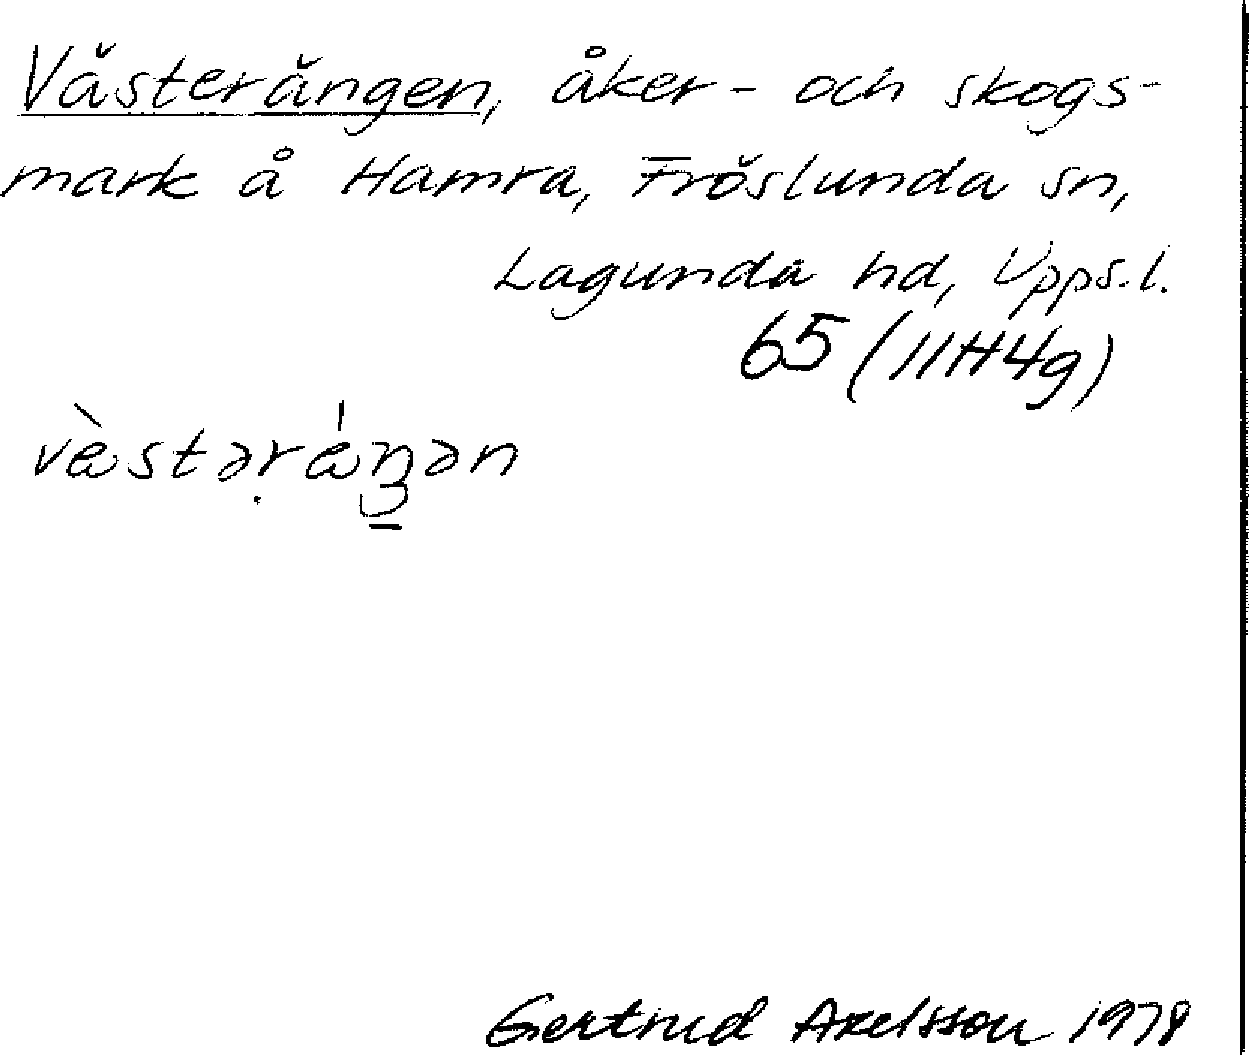 Västerängen, åker- och skogs-
mark å Hamra, Fröslunda sn,
Lagunda hd, Upps.l.
65 (11H4g)
væ̀stəṛǽŋən
Gertrud Axelsson 1978